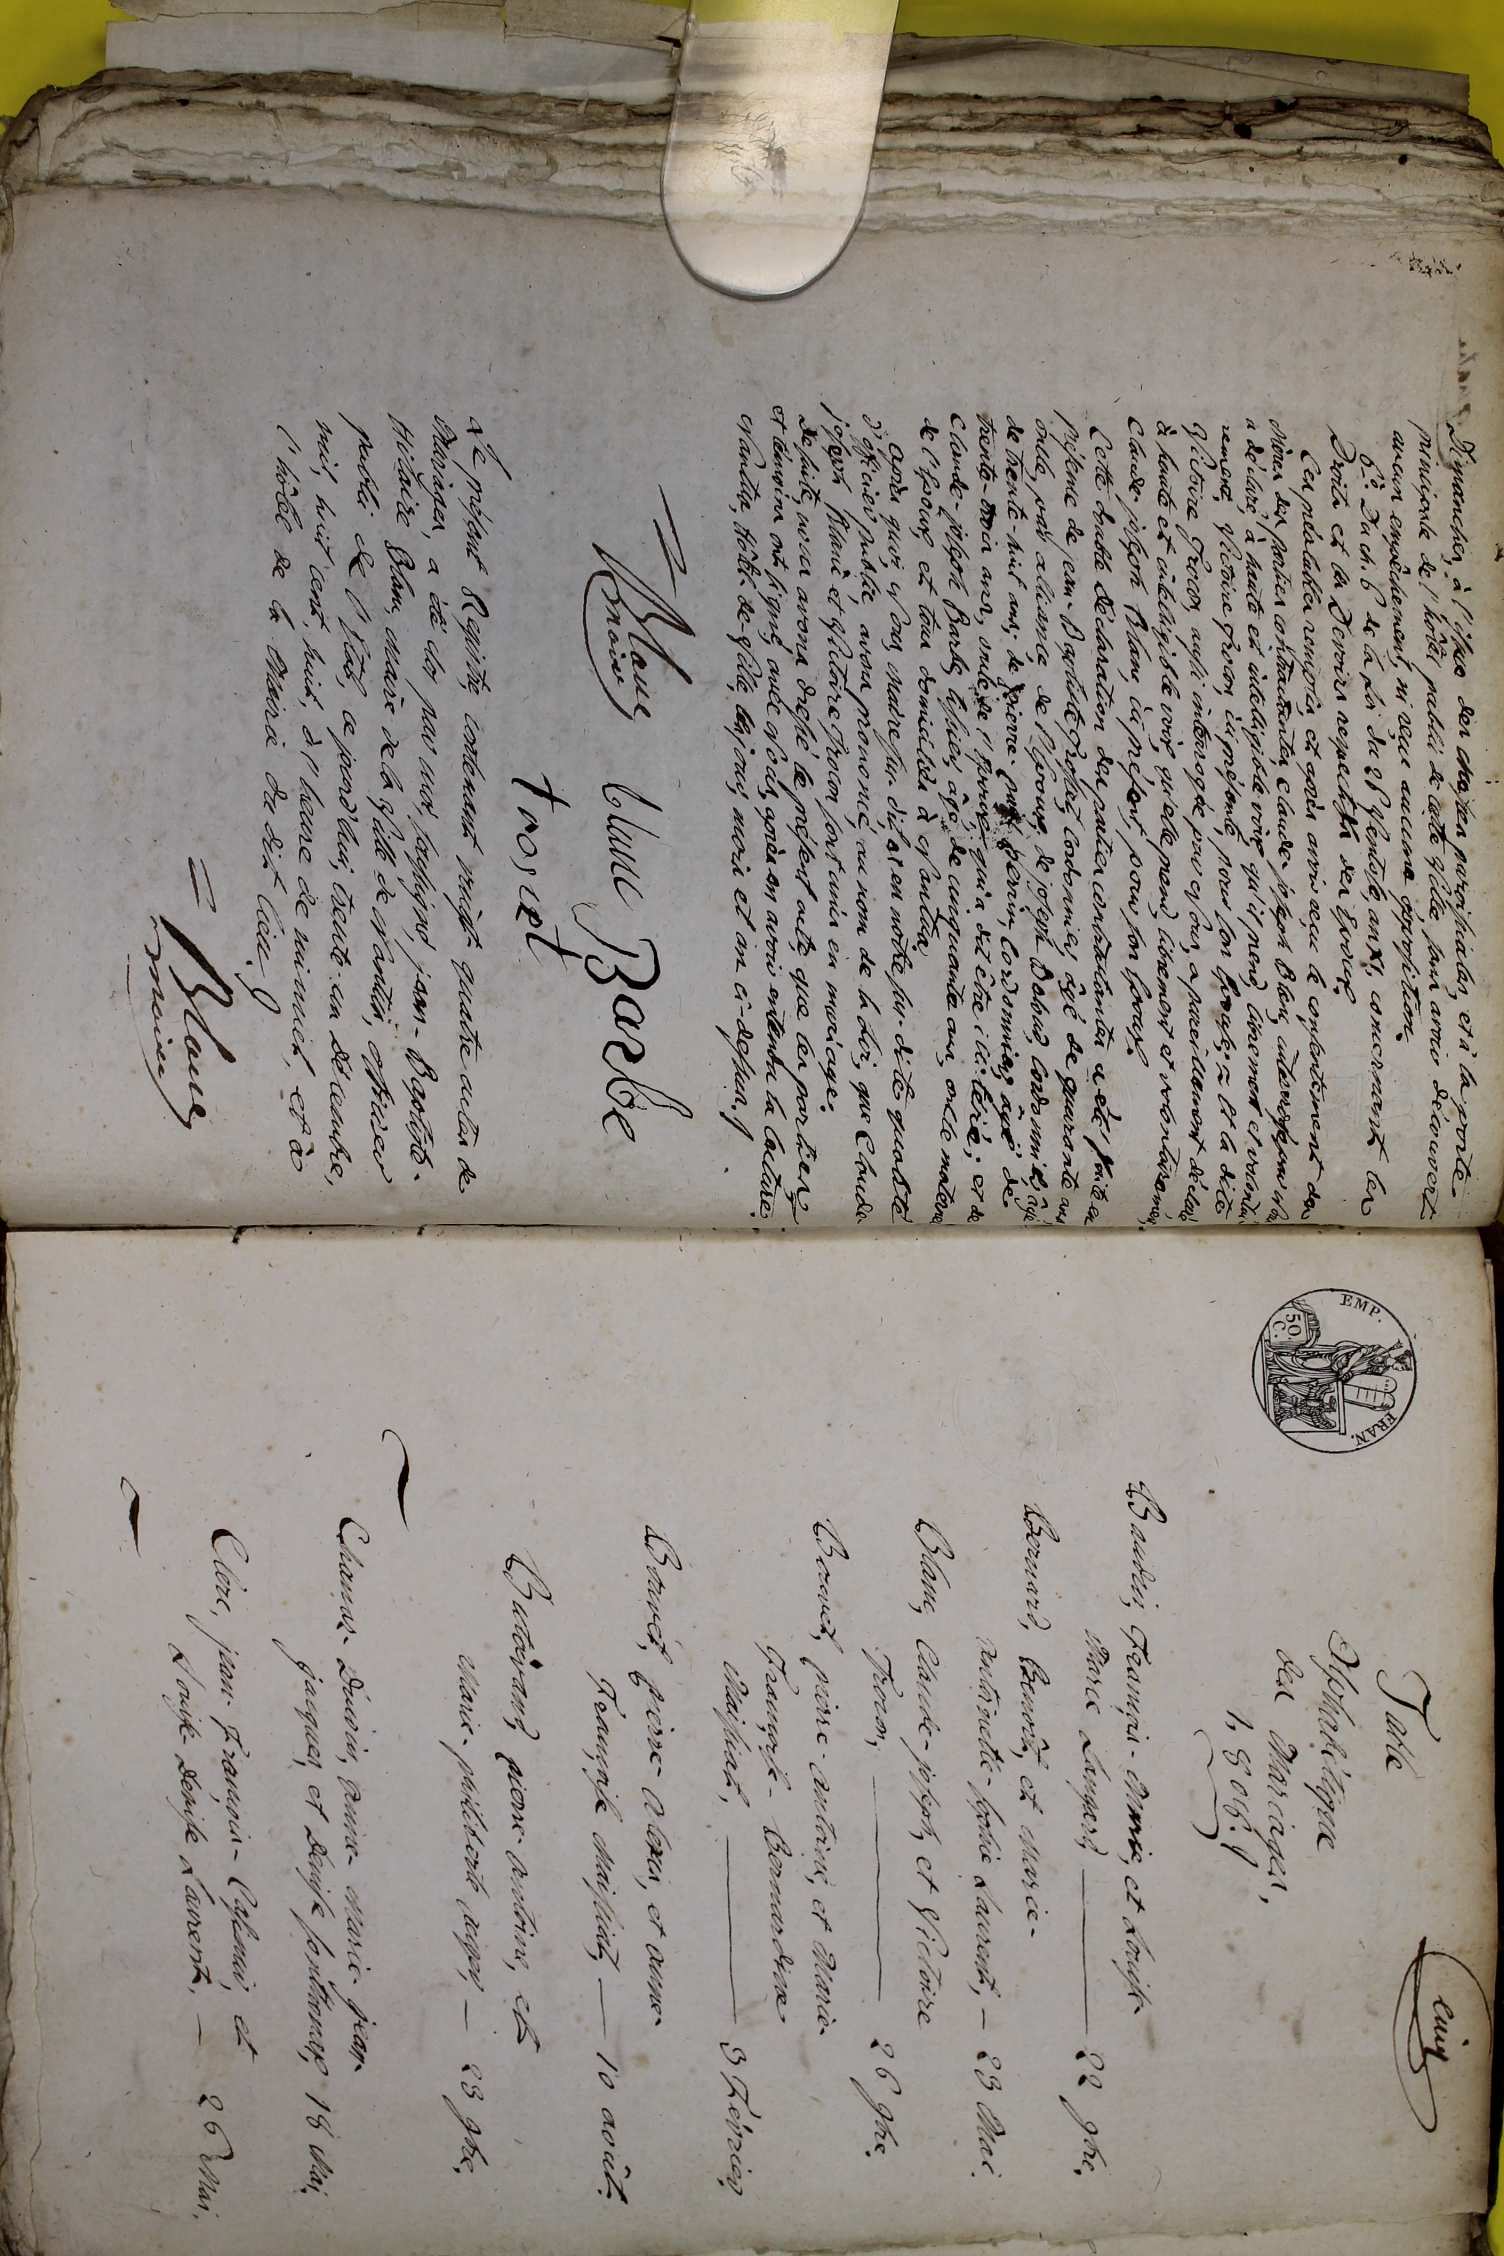 Dimanches, à l'issue des Messes paroissiales, et à la porte
principale de l'hôtel public de cette Ville, sans avoir découvert
aucun empêchement, ni reçu aucune opposition.
6.° Du ch. 6 de la Loi du 26 Ventose, an XI, concernant les
Droits et les Devoirs respectifs des Epoux.
Ces préalables remplis, et après avoir reçu le consentement des
Mères des parties contractantes, Claude-joseph Blanc, interrogé par Nous
a déclaré, à haute et intelligible voix, qu'il prend, librement et volontai-
rement, Victoire Trocon, ici présente, pour son Epouse; et la dite
Victoire Trocon, aussi interrogée par Nous, a pareillement déclaré
à haute et intelligible voix, qu'elle prend, librement et volontairement,
Claude-joseph Blanc, ici présent, pour son Epoux.
Cette double déclaration des parties contractantes a été faite en
présence de jean-Baptiste cordonnier, âgé de quarante ans
oncle, par alliance de l'Epoux, de joseph cordonnier, âgé
de trente huit ans; de pierre Perrin, Cordonnier, âgé de
trente-trois ans, oncle de l'Epouse, qui a dit être illitéré; et de
Claude-joseph Barbe, âgé de cinquante ans, oncle maternel
de l'Epoux, et tous domiciliés à Nantua.
Après quoi, Nous, Maire sus-dit, et en notre sus-dite qualité
d'officier public, avons prononcé, au nom de la Loi, que Claude
joseph Blanc et Victoire Trocon sont unis en mariage.
De suite, nous avons dressé le présent acte, que les parties
et témoins ont signé, avec Nous, après en avoir entendu la lecture.
Nantua, Hôtel-de-Ville, les jour, mois et an ci-dessus.
Blanc Barbe
maire
Le présent Registre, contenant vingt quatre actes de
Mariages, a été clos par moi, soussigné, jean-Baptiste-
Hilaire Blanc, Maire de la Ville de Nantua, officier
public de l'Etat, ce jourd'hui, trente-un décembre,
mil, huit cent, huit, à l'heure de minuit, et à
l'hôtel de la Mairie du dit lieu.
Blanc
maire
EMP. FRAN.
50 C.
cinq
Table
Alphabétique
des Mariages,
1,808.
Baudin, François-Marie, et Louise-
Marie Langard, 22 9bre.
Bernard, Benoît, et Marie-
Antoinette-Sophie Laurent, — 23 Mai.
Blanc, Claude-joseph, et Victoire
Trocon, 26 9bre.
Bouvet, pierre-antoine, et Marie-
Françoise-Bernardine
Maissiat, 3 Février.
Bouvet, pierre-Alexis, et anne-
Françoise Maissiat, — 10 août.
pierre-antoine, et
Marie-philiberte — 23 9bre.
anne-Marie-jean-
jacques, et Denise 18 Mai.
Clerc, jean-François- et
Louise-Denise Laurent, — 26 Mai.